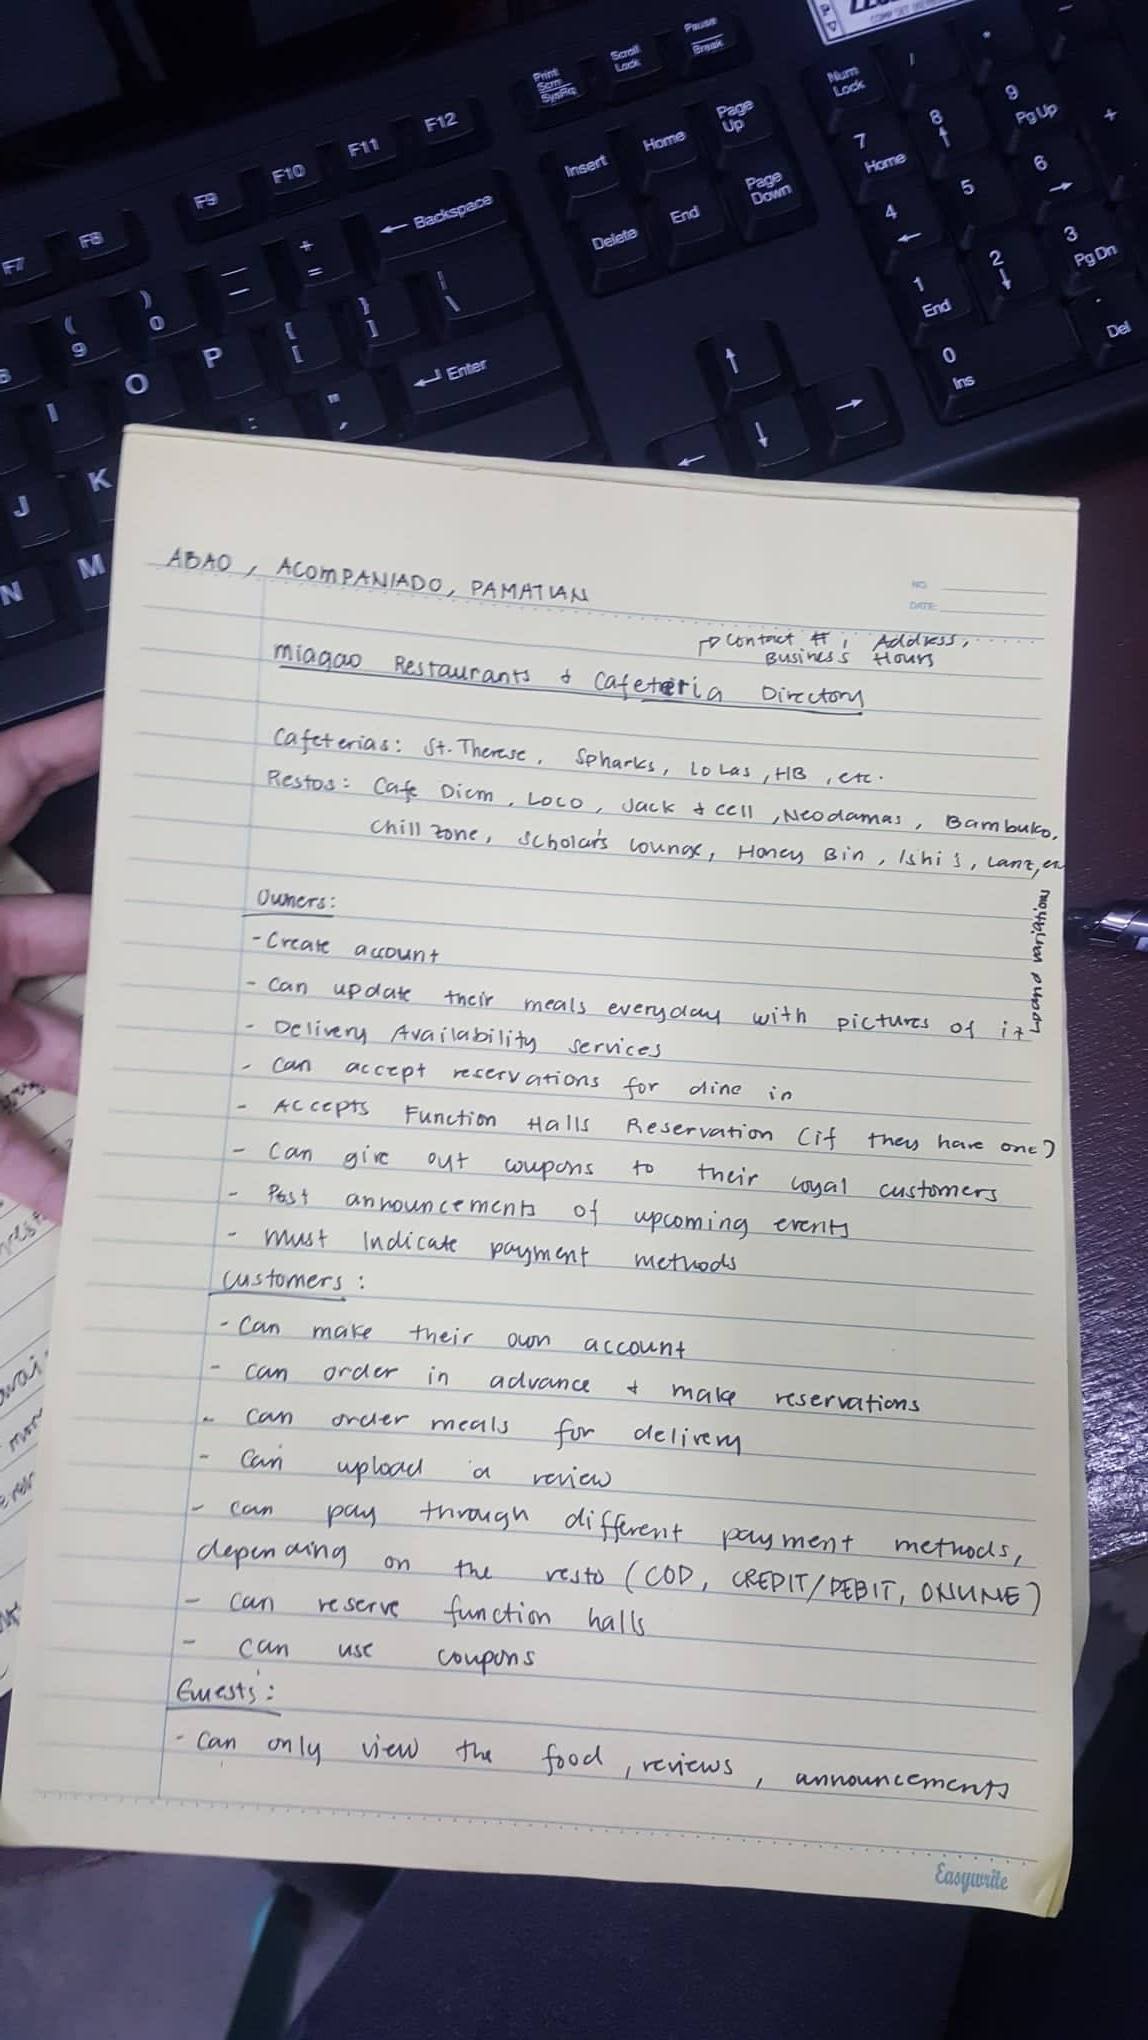 Print Scrn SysRq
Scroll Lock
Pause Break
F7 F8 F9 F10 F11 F12
Insert Home Page Up
Delete End Page Down
Num Lock / *
7 Home 8 ↑ 9 PgUp +
4 ← 5 6 →
1 End 2 ↓ 3 PgDn
0 Ins . Del
( 9 ) 0 — - + = ← Backspace
I O P { [ } ] | \
J K : " , ↵ Enter
N M
↑
← ↓ →
ABAO, ACOMPANIADO, PAMATIAN
NO.
DATE:
↱ Contact #, Address,
Business Hours
Miagao Restaurants & Cafeteria Directory
Cafeterias: St. Therese, Spharks, Lolas, HB, etc.
Restos: Cafe Diem, Loco, Jack & cell, Neodamas, Bambuko,
Chill zone, Scholar's Lounge, Honey Bin, Ishi's, Lanz,
Owners:
- Create account
- Can update their meals everyday with pictures of it
↳ and variations
- Delivery Availability services
- Can accept reservations for dine in
- Accepts Function Halls Reservation (if they have one)
- Can give out coupons to their loyal customers
- Post announcements of upcoming events
- Must Indicate payment methods
Customers:
- Can make their own account
- can order in advance & make reservations
- can order meals for delivery
- Can upload a review
- can pay through different payment methods,
depending on the resto (COD, CREDIT/DEBIT, ONLINE)
- can reserve function halls
- can use coupons
Guests:
- Can only view the food, reviews, announcements
Easywrite